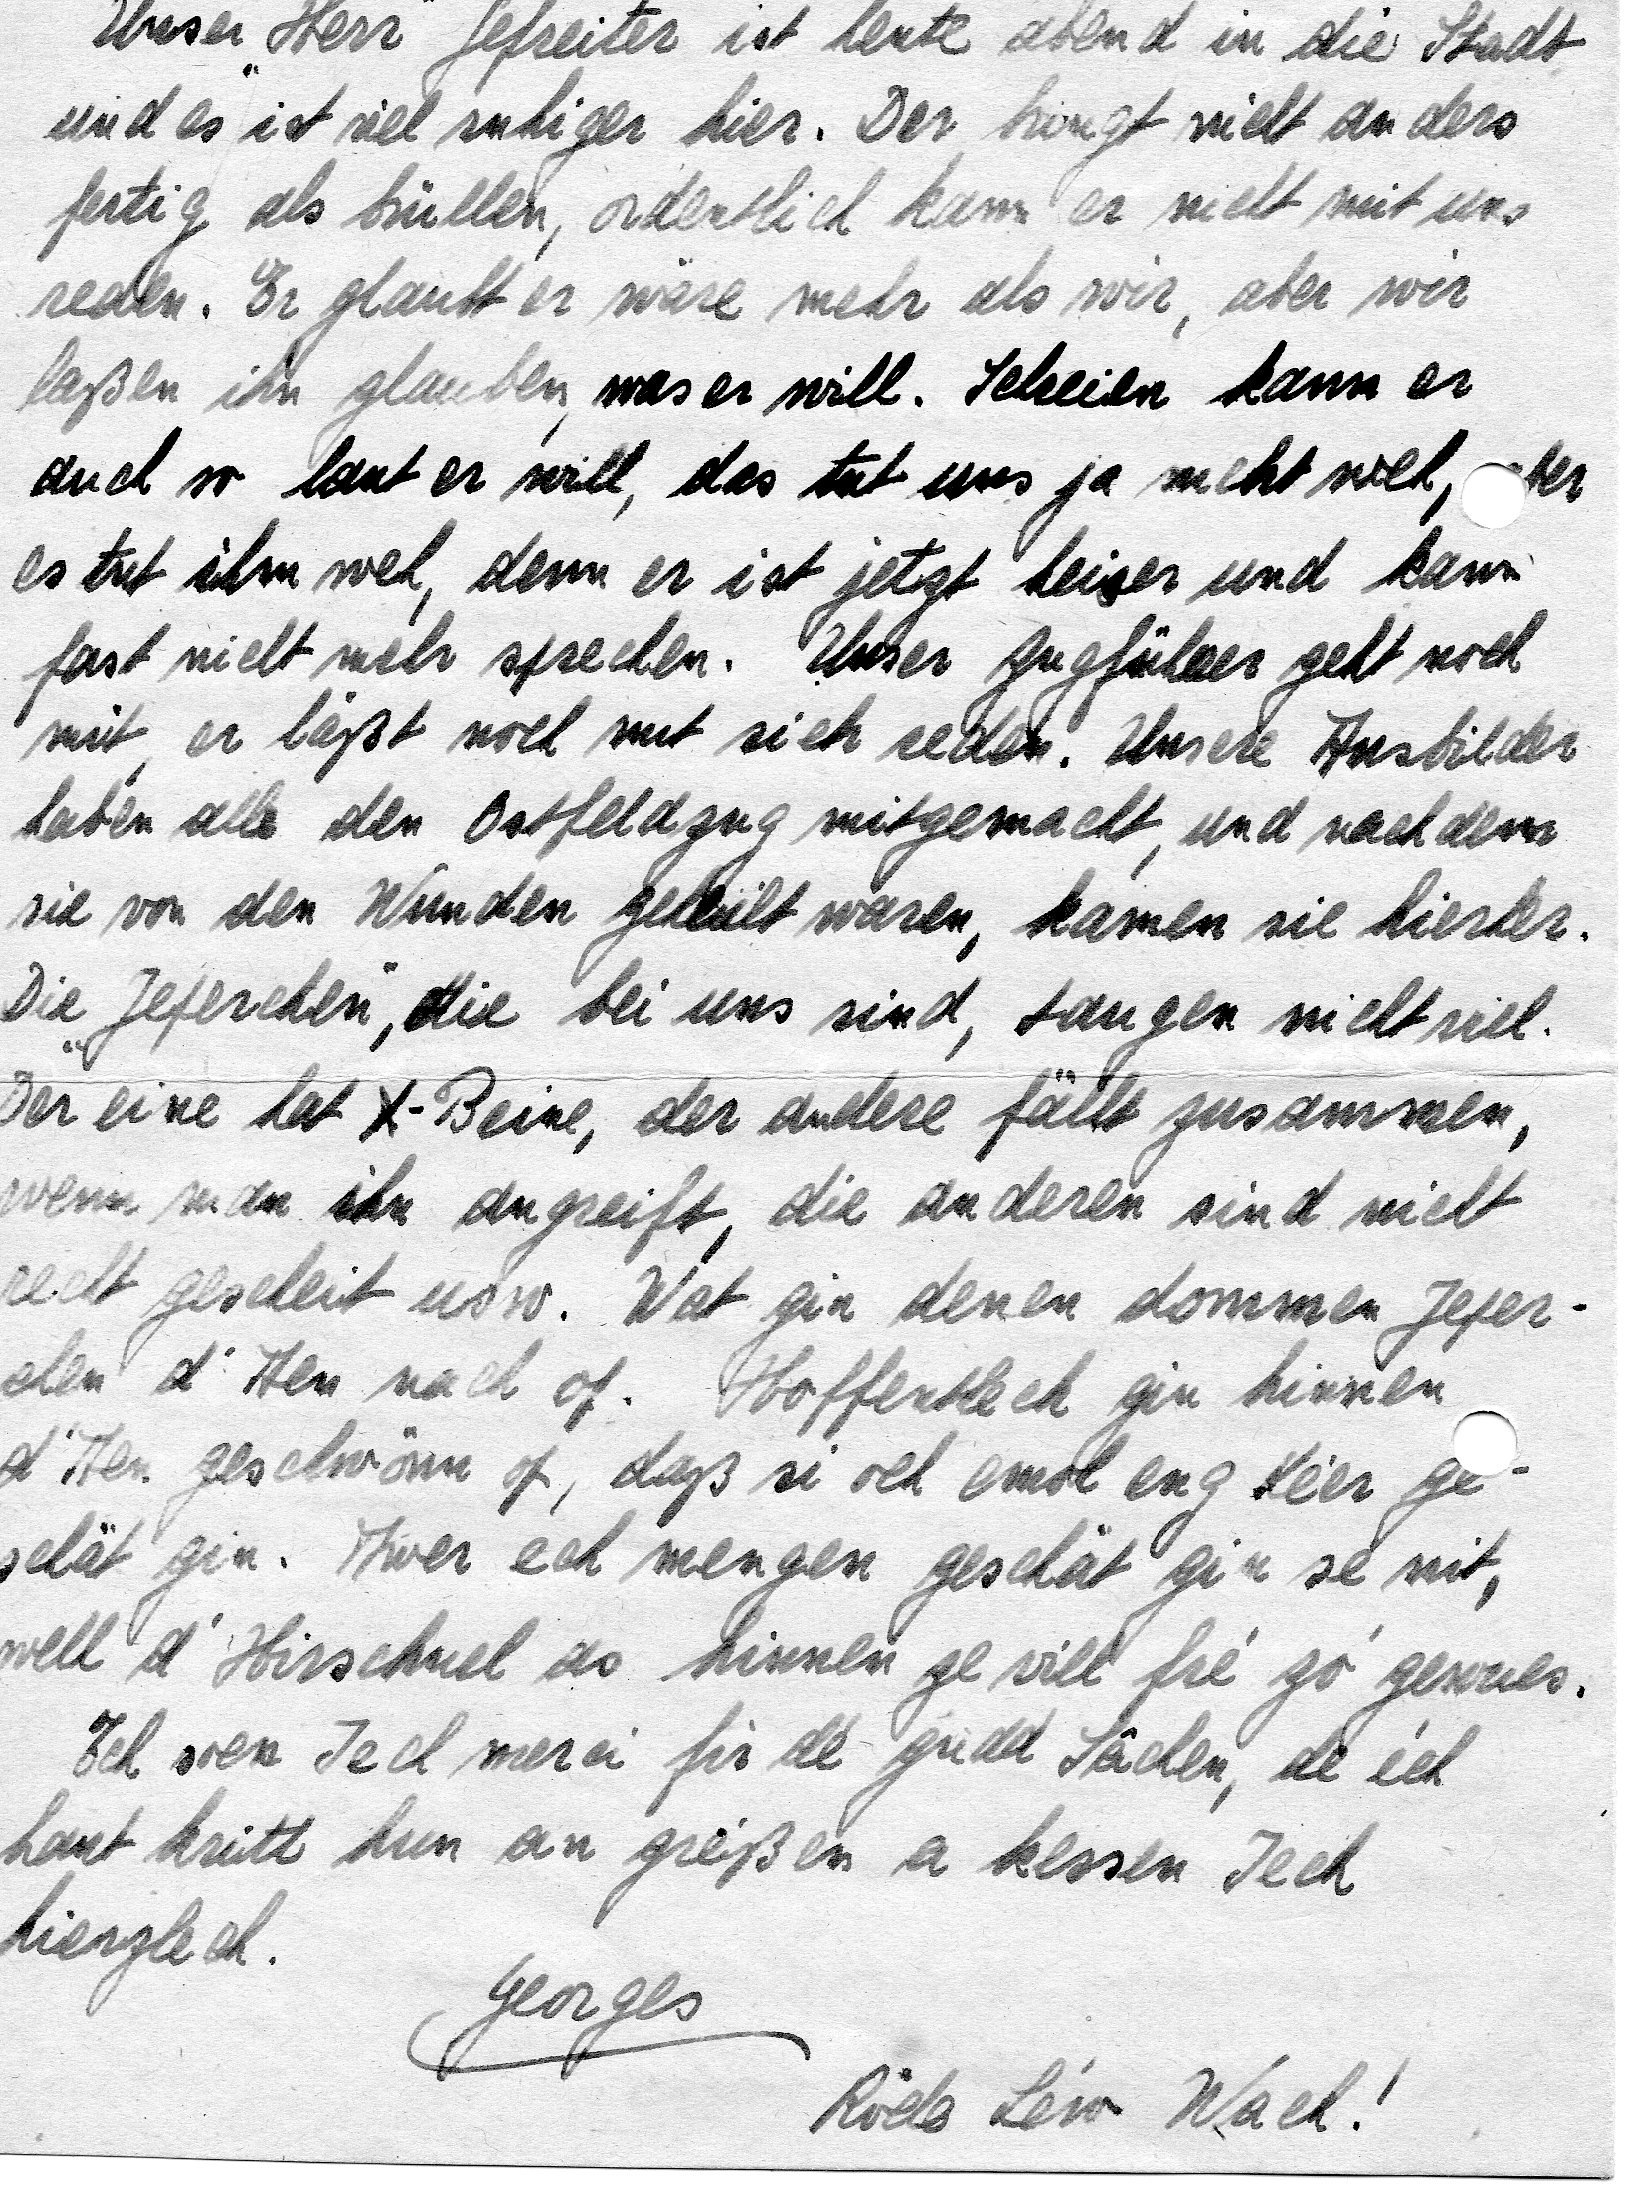 Unser „Herr" Gefreiter ist heute abend in die Stadt
und es ist viel ruhiger hier. Der bringt nicht anders
fertig als brüllen, ordentlich kann er nicht mit uns
reden. Er glaubt er wäre mehr als wir, aber wir
laßen ihn glauben, was er will. Schreien kann er
auch so laut er will, das tut uns ja nicht weh, aber
es tut ihm weh, denn er ist jetzt heiser und kann
fast nicht mehr sprechen. Unser Zugführer geht noch
mit, er läßt noch mit sich reden. Unsere Ausbilder
haben alle den Ostfeldzug mitgemacht, und nachdem
sie von den Wunden geheilt waren, kamen sie hierher.
Die „Jeferchen", die bei uns sind, taugen nicht viel.
Der eine hat X-Beine, der andere fällt zusammen,
wenn man ihn angreift, die anderen sind nicht
recht gescheit usw. Wat gin denen dommen Jefer-
chen d'Aen nach op. Hoffentlech gin hinnen
d'Aen geschwönn op, daß si och emol eng Kéer ge-
schät gin. Awer ech mengen geschät gin se nit,
well d'Hirschnel as hinnen ze vill fré zó gewues.
Ech soen Iech merci fir dé gudd Sâchen, dé éch
haut kritt hun an gréißen a kessen Iech
hierzlech.
Georges
Róde Léiw Wach!